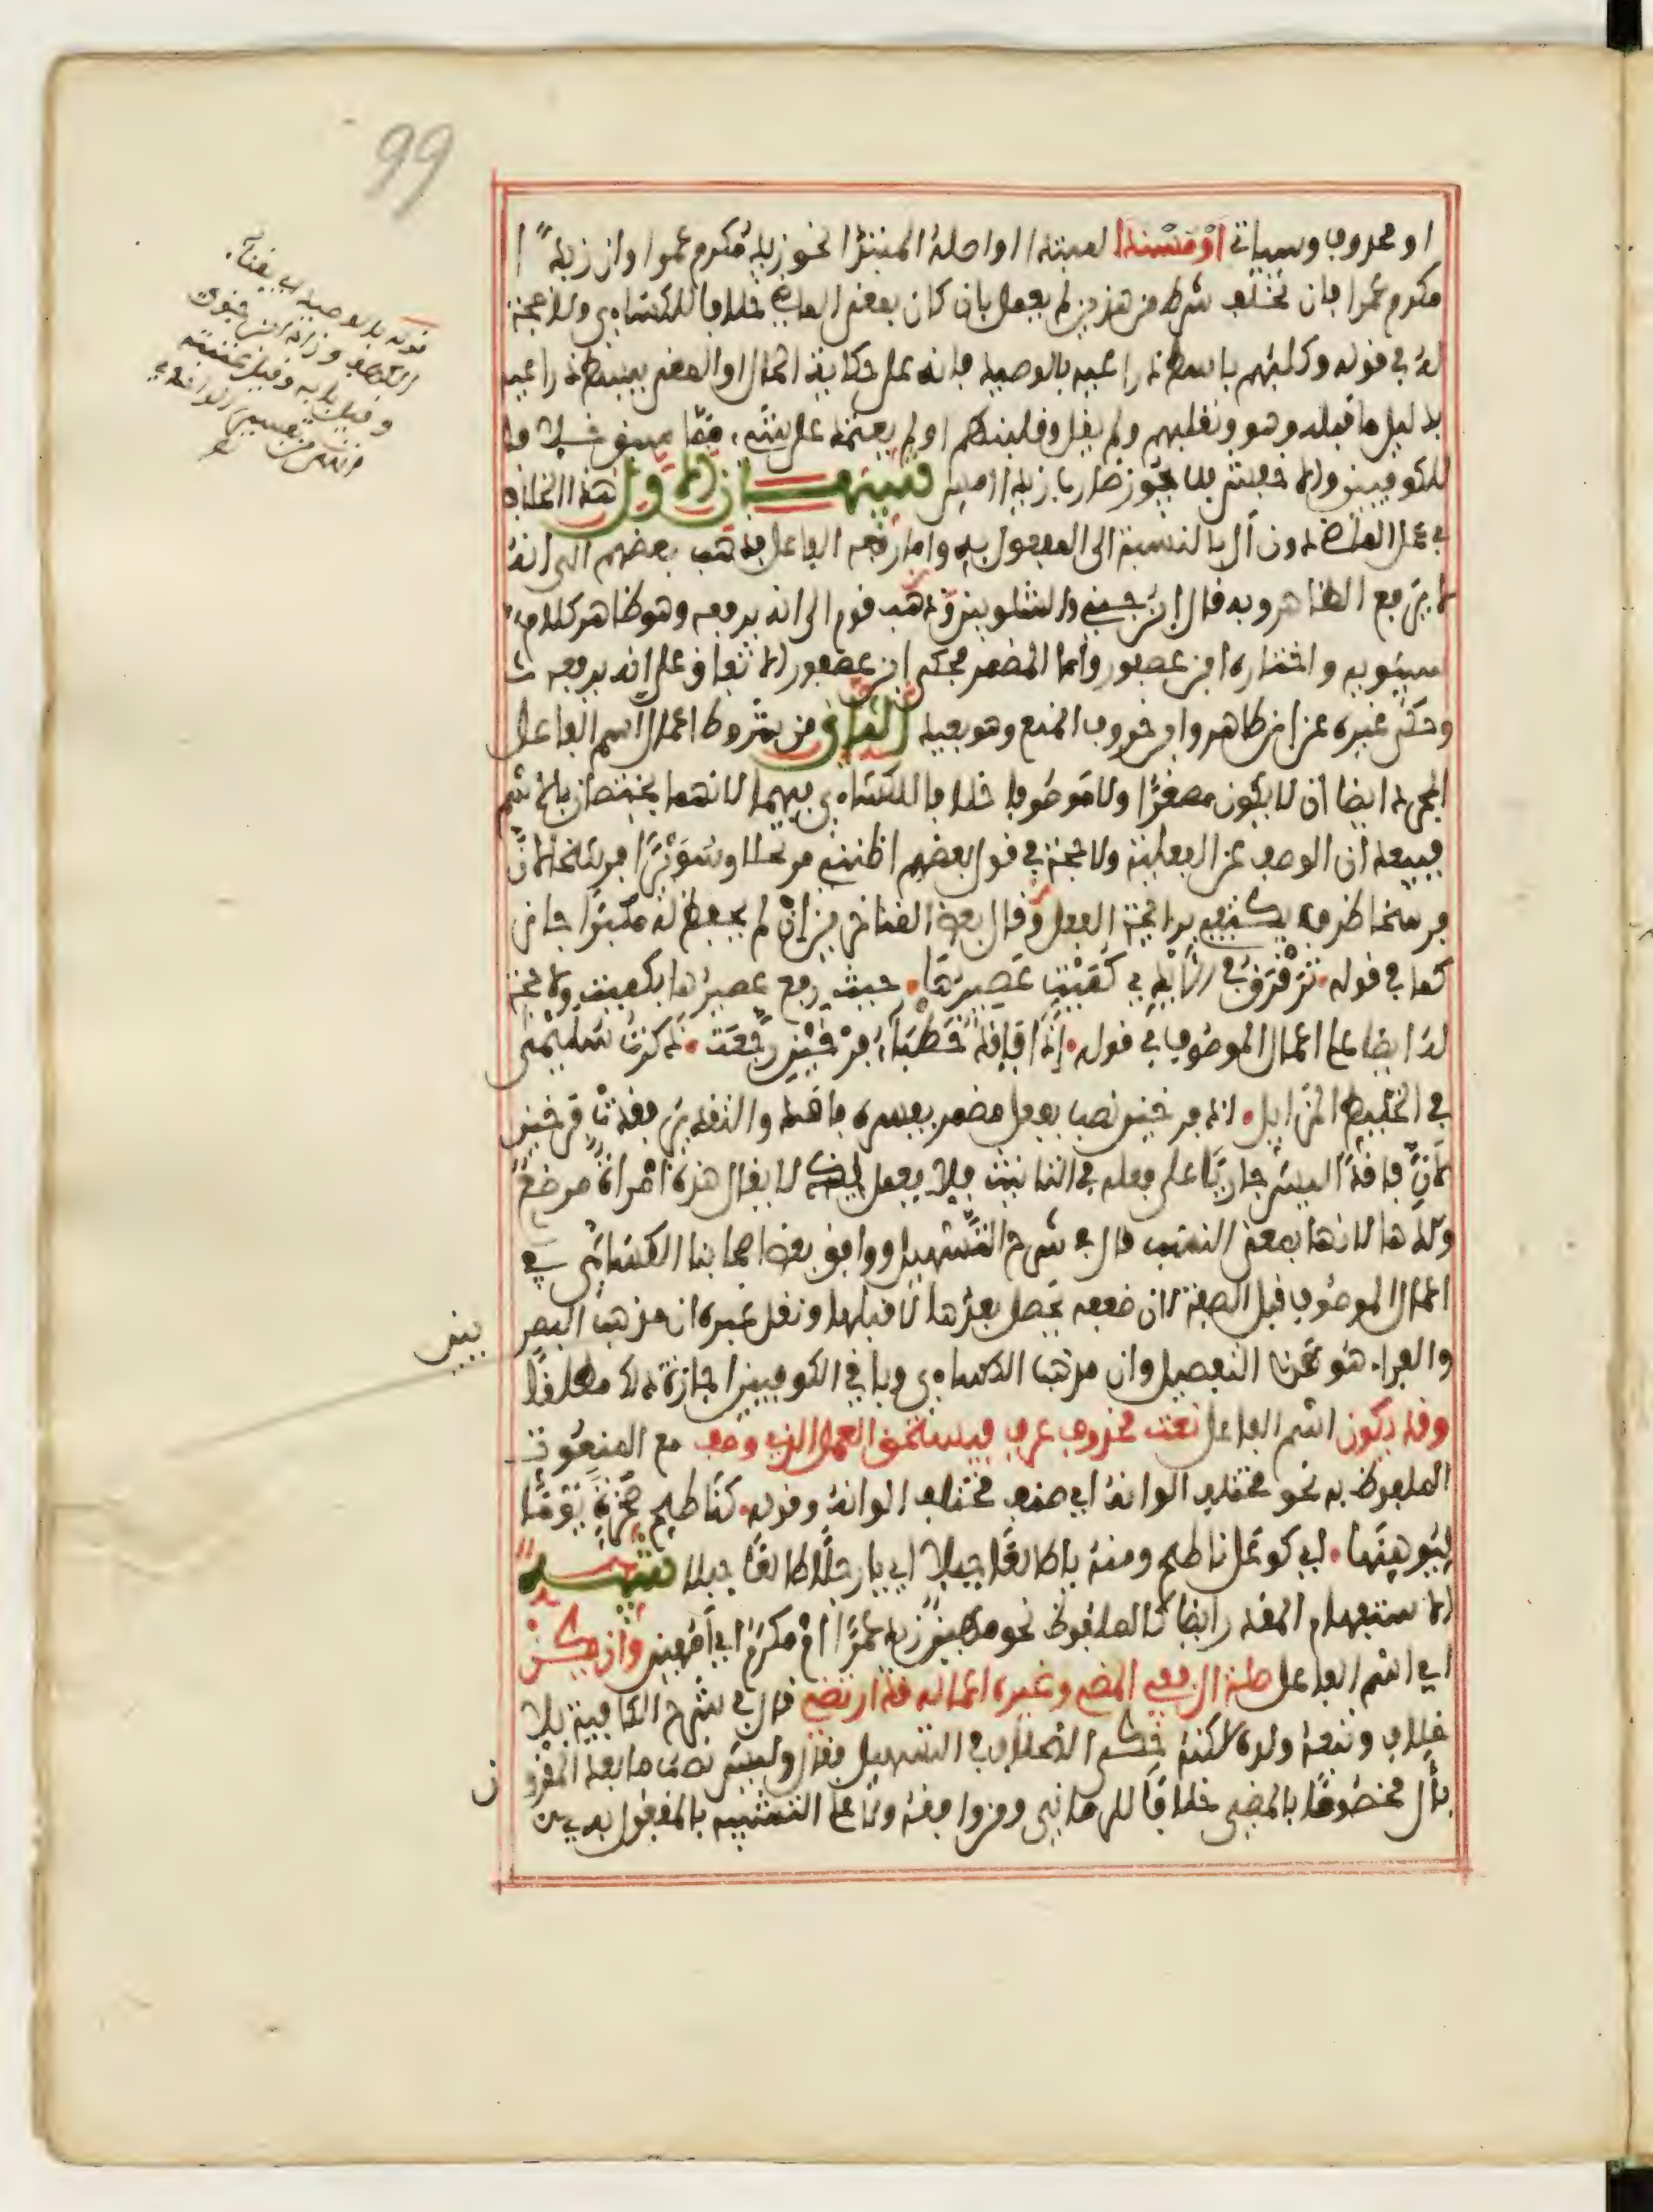 99
او محذوف وسياتي أوْ مُسْنَدا لمبتدا او اصله المبتدأ نحو زيدٌ مُكرِم عمرا وان زيداً
مكرم عمرا فان تخلف شرط من هذين لم يعمل بان كان بمعنى الماضي خلافا للكساءي ولا حجة
له في قوله وكلبهم باسط ذراعيه بالوصيد فانه على حكاية الحال والمعنى يبسط ذراعيه
بدليل ما قبله وهو ونقلبهم ولم يقل وقلبناهم او لم يعتمد على شيء مما سبق خلافا
للكوفيين والاخفش فلا يجوز ضارب زيدا امس تنبيهــان الاول هذا الخلاف
في عمل الماضي دون ال بالنسبة الى المفعول به واما رفعه الفاعل فذهب بعضهم الى انه
لا يرفع الظاهر وبه قال ابن جني والشلوبين وذهب قوم الى انه يرفعه وهو ظاهر كلام
سيبويه واختاره ابن عصفور واما المضمر فحكى ابن عصفور الاتفاق على انه يرفعه
وحكى غيره عن ابن طاهر وابن خروف المنع وهو بعيد الثاني من شروط اعمال اسم الفاعل
المجرد ايضا ان لا يكون مصغرا ولا موصوفا خلافا للكساءي فيهما لانهما يختصان بالاسم
فيبعدان الوصف عن الفعلية ولا حجة في قول بعضهم اظنني مرتحلا وسُوَيّرًا فرسخا لانّ
فرسخا ظرف يكتفي برائحة الفعل وقال بعض المتاخرين ان لم يحفظ له مكبرا جاز
كما في قوله تَرَقْرَقُ في الأيدي كُمَيْتٌ عَصِيرُها حيث رفع عصيرها بكميت ولا حجة
له ايضا على اعمال الموصوف في قوله إذا فاقدٌ خطباءُ فرخين رجّعت ذكرت سُليمى
في الخليط المزايل اذ فرخين نصب بفعل مضمر يفسره فاقد والتقدير فقدت فرخين
لأنّ فاقدا ليس جاريا على فعله في التانيث فلا يعمل اذ لا يقال هذه امراة مرضعٌ
ولدها لانها بمعنى النسب قال في شرح التسهيل ووافق بعض اصحابنا الكسائي في
اعمال الموصوف قبل الصفة لان ضعفه يحصل بعدها لا قبلها ونقل غيره ان مذهب البصر
يين
والفراء هو هذا التفصيل وان مذهب الكساءي وباقي الكوفيين اجازة ذلك مطلقا
وقد يكون اسم الفاعل نعت محذوف عرف فيستحق العمل الذي وصف مع المنعوت
الملفوظ به نحو مختلف الوانه اي صنف مختلف الوانه وقوله كناطح صخرة يوما
ليوهنها اي كوعل ناطح ومنه يا طالعا جبلا اي يا رجلا طالعا جبلا تنبيــه
الاستفهام المقدر ايضا كالملفوظ نحو مهين زيد عمرا ام مكرم اي أمهين وان يكنْ
اي اسم الفاعل صلة ال ففي المضي وغيره اعماله قد ارتضي قال في شرح الكافية بلا
خلاف وتبعه ولده لكنه حكى الخلاف في التسهيل فقال وليس نصب ما بعد المقرو
ن
بأل مخصوصا بالمضي خلافا للمازني ومن وافقه ولا على التشبيه بالمفعول به
قوله بالوصيد اي بفناء